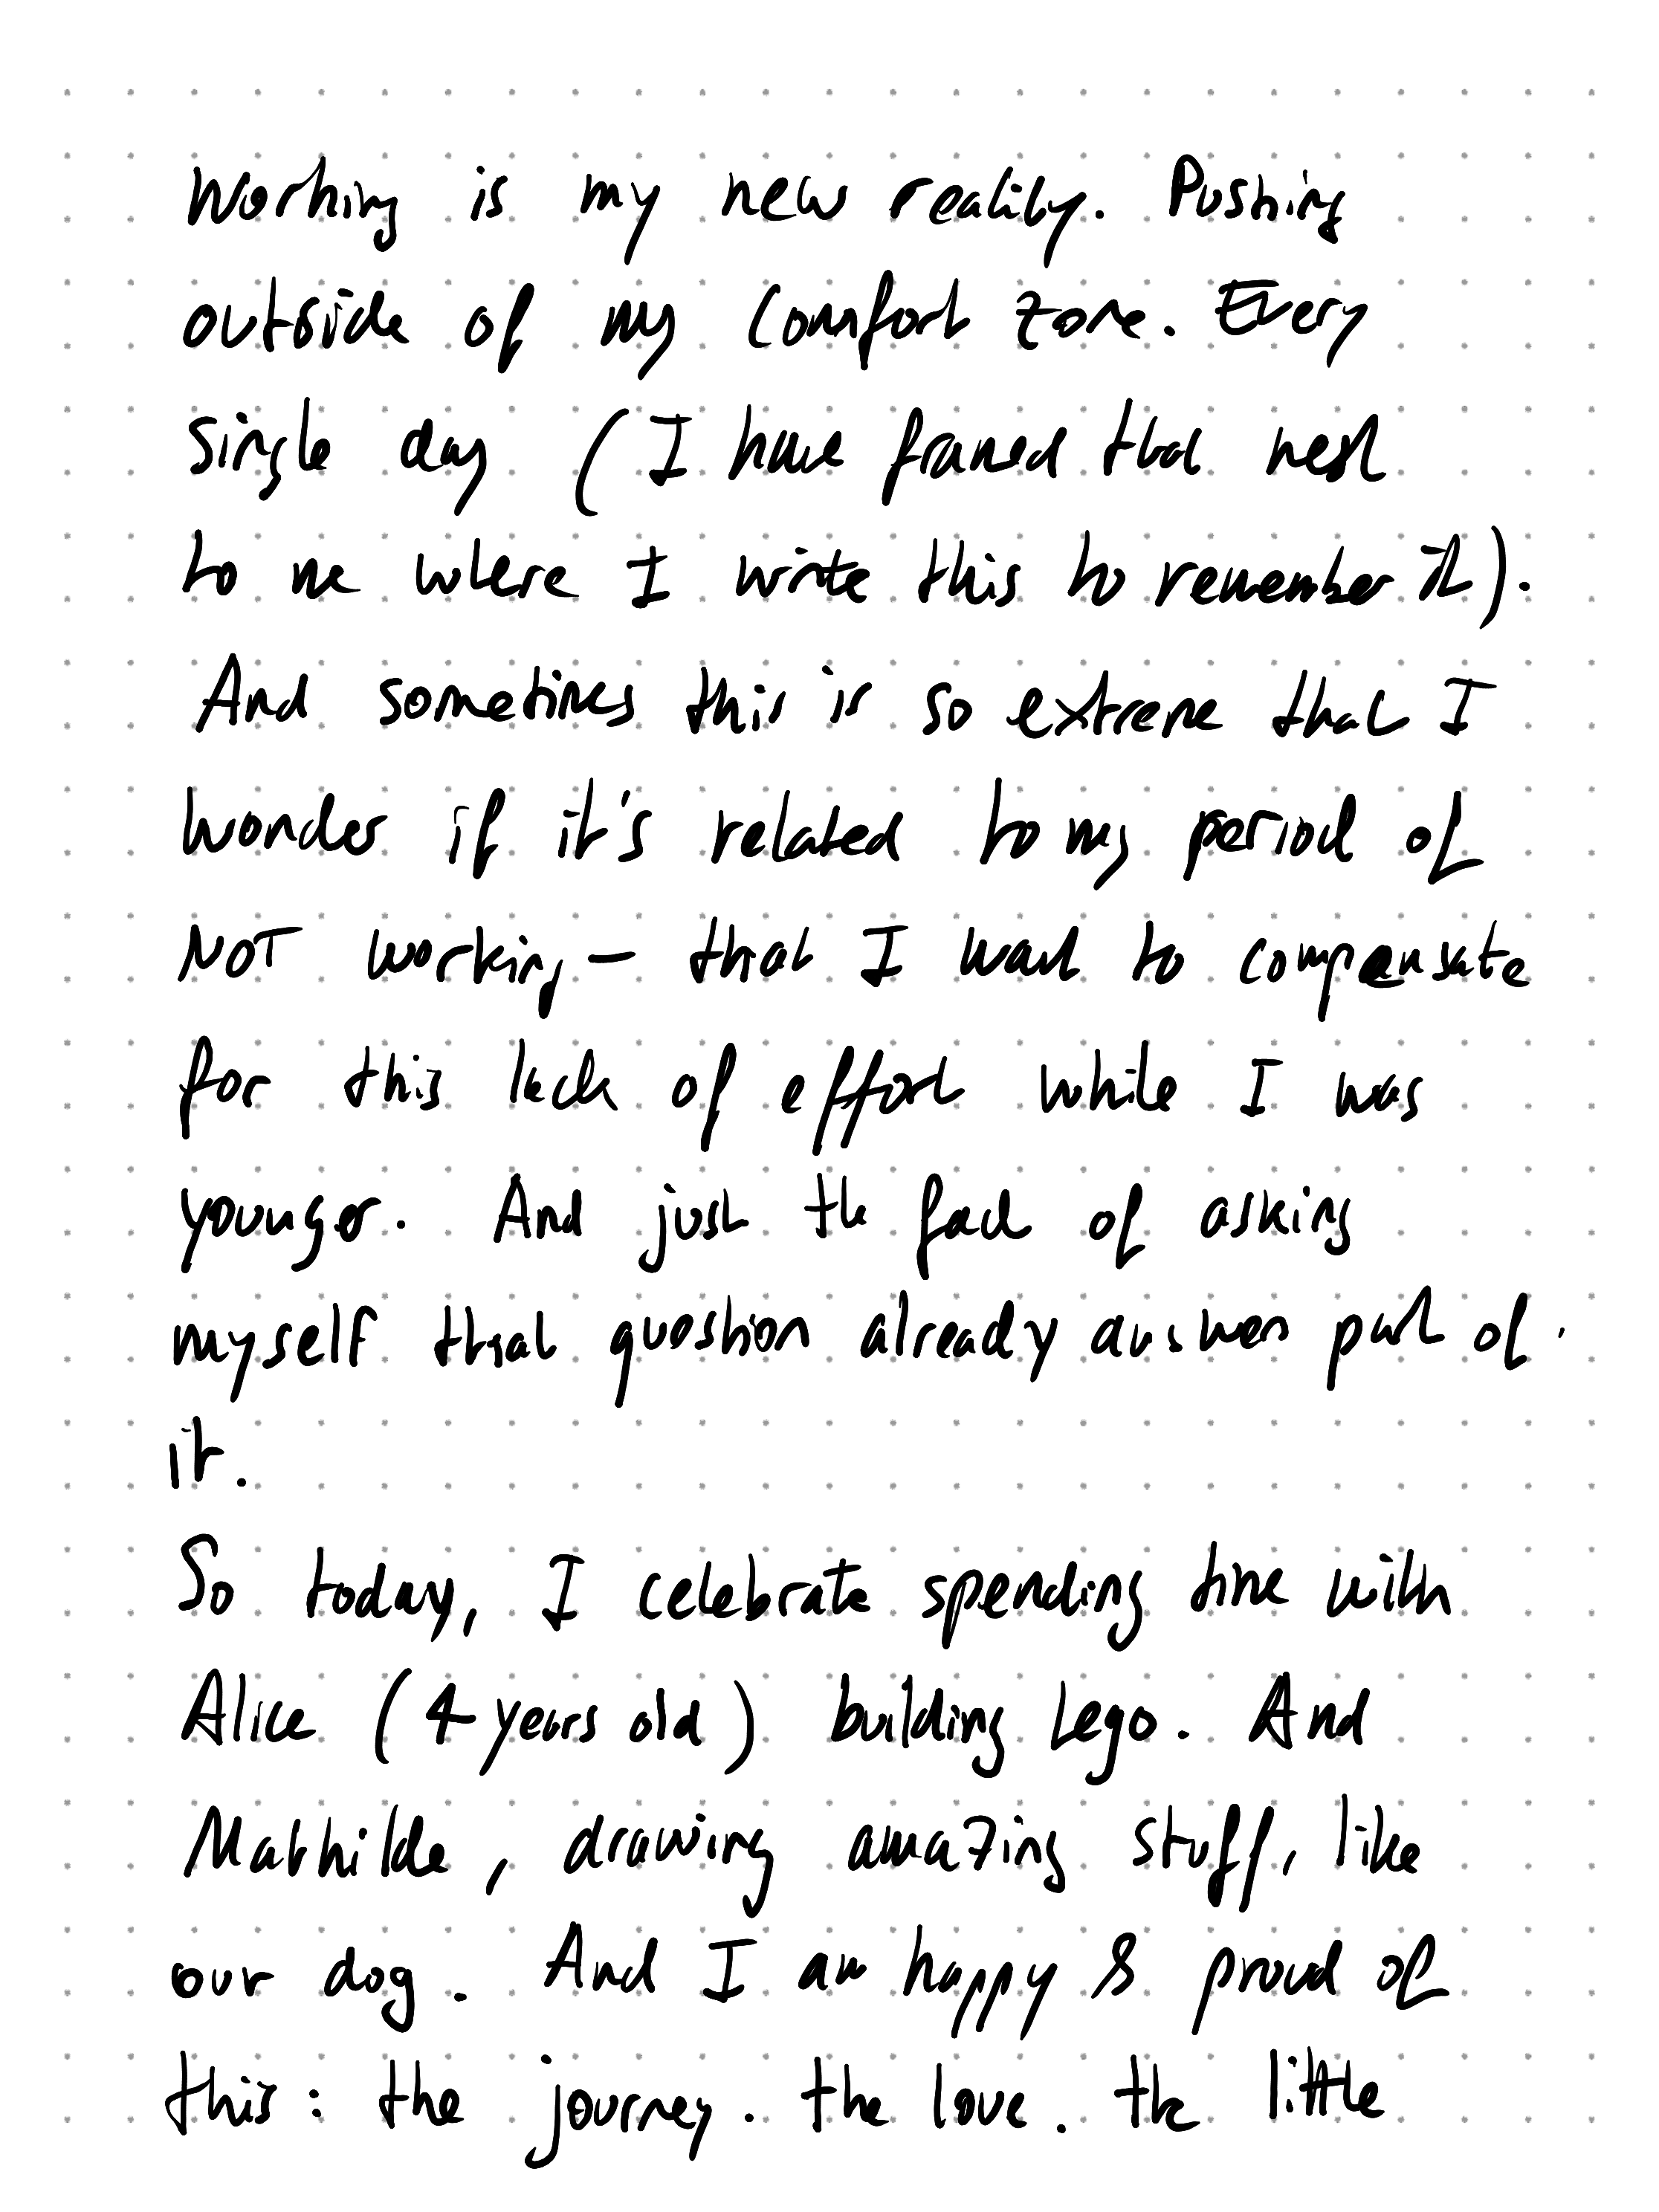 Working is my new reality. Pushing
outside of my comfort zone. Every
single day (I have framed that next
to me where I write this to remember it).
And sometimes this is so extreme that I
wonder if it's related to my period of
NOT working - that I want to compensate
for this lack of effort while I was
younger. And just the fact of asking
myself that question already answer part of
it.
So today, I celebrate spending time with
Alice (4 years old) building Lego. And
Mathilde, drawing amazing stuff, like
our dog. And I am happy & proud of
this: the journey. the love. the little